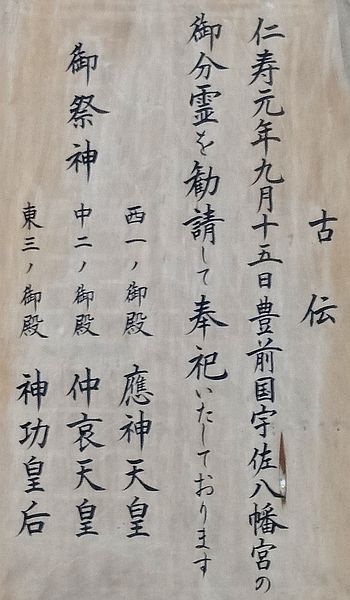 古伝
仁寿元年九月十五日豊前国宇佐八幡宮の
御分霊を勧請して奉祀いたしております
御祭神
西一ノ御殿 應神天皇
中二ノ御殿 仲哀天皇
東三ノ御殿 神功皇后